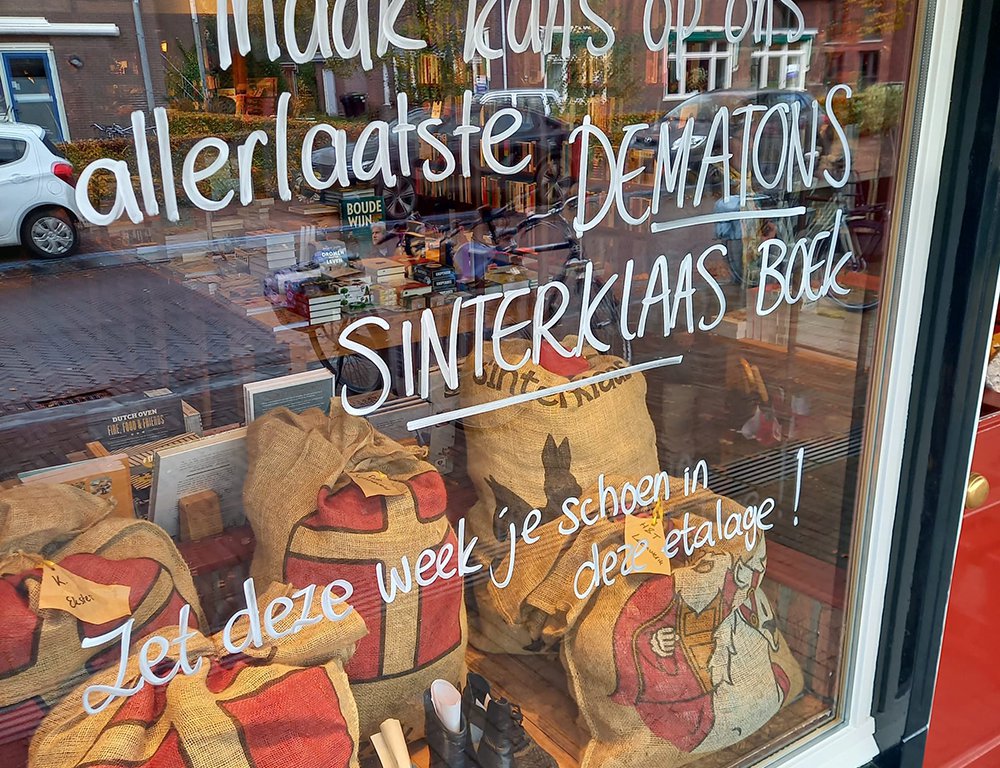 maak kans op ons
allerlaatste DEMATONS
SINTERKLAAS BOEK
Zet deze week je schoen in
deze etalage !
BOUDE
WIJN
DUTCH OVEN
FIRE, FOOD & FRIENDS
Sinterklaas
K.
Ekster